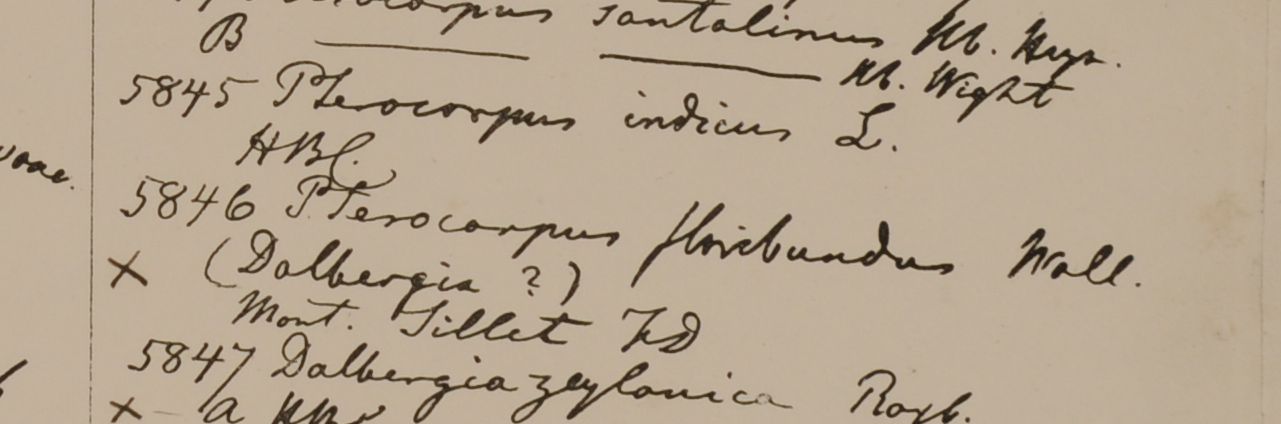 santalinus Hb. Heyn.
B ——— ——— Hb. Wight
5845 Pterocarpus indicus L.
HBC.
5846 Pterocarpus floribundus Wall.
× (Dalbergia ?)
Mont. Sillet FD
5847 Dalbergia zeylanica Roxb.
× a